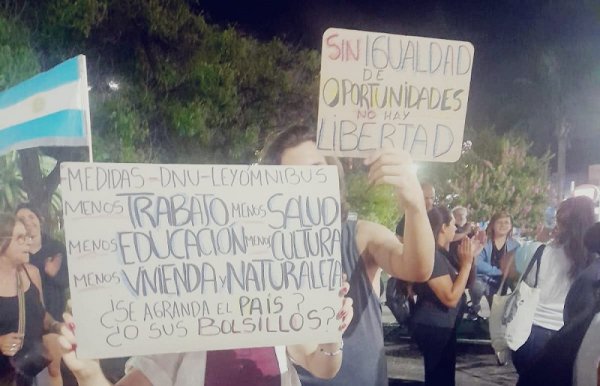 SIN IGUALDAD
DE
OPORTUNIDADES
NO HAY
LIBERTAD
MEDIDAS-DNU-LEYOMNIBUS
MENOS TRABAJO MENOS SALUD
MENOS EDUCACIÓN MENOS CULTURA
MENOS VIVIENDA Y NATURALEZA
¿SE AGRANDA EL PAÍS?
¿O SUS BOLSILLOS?